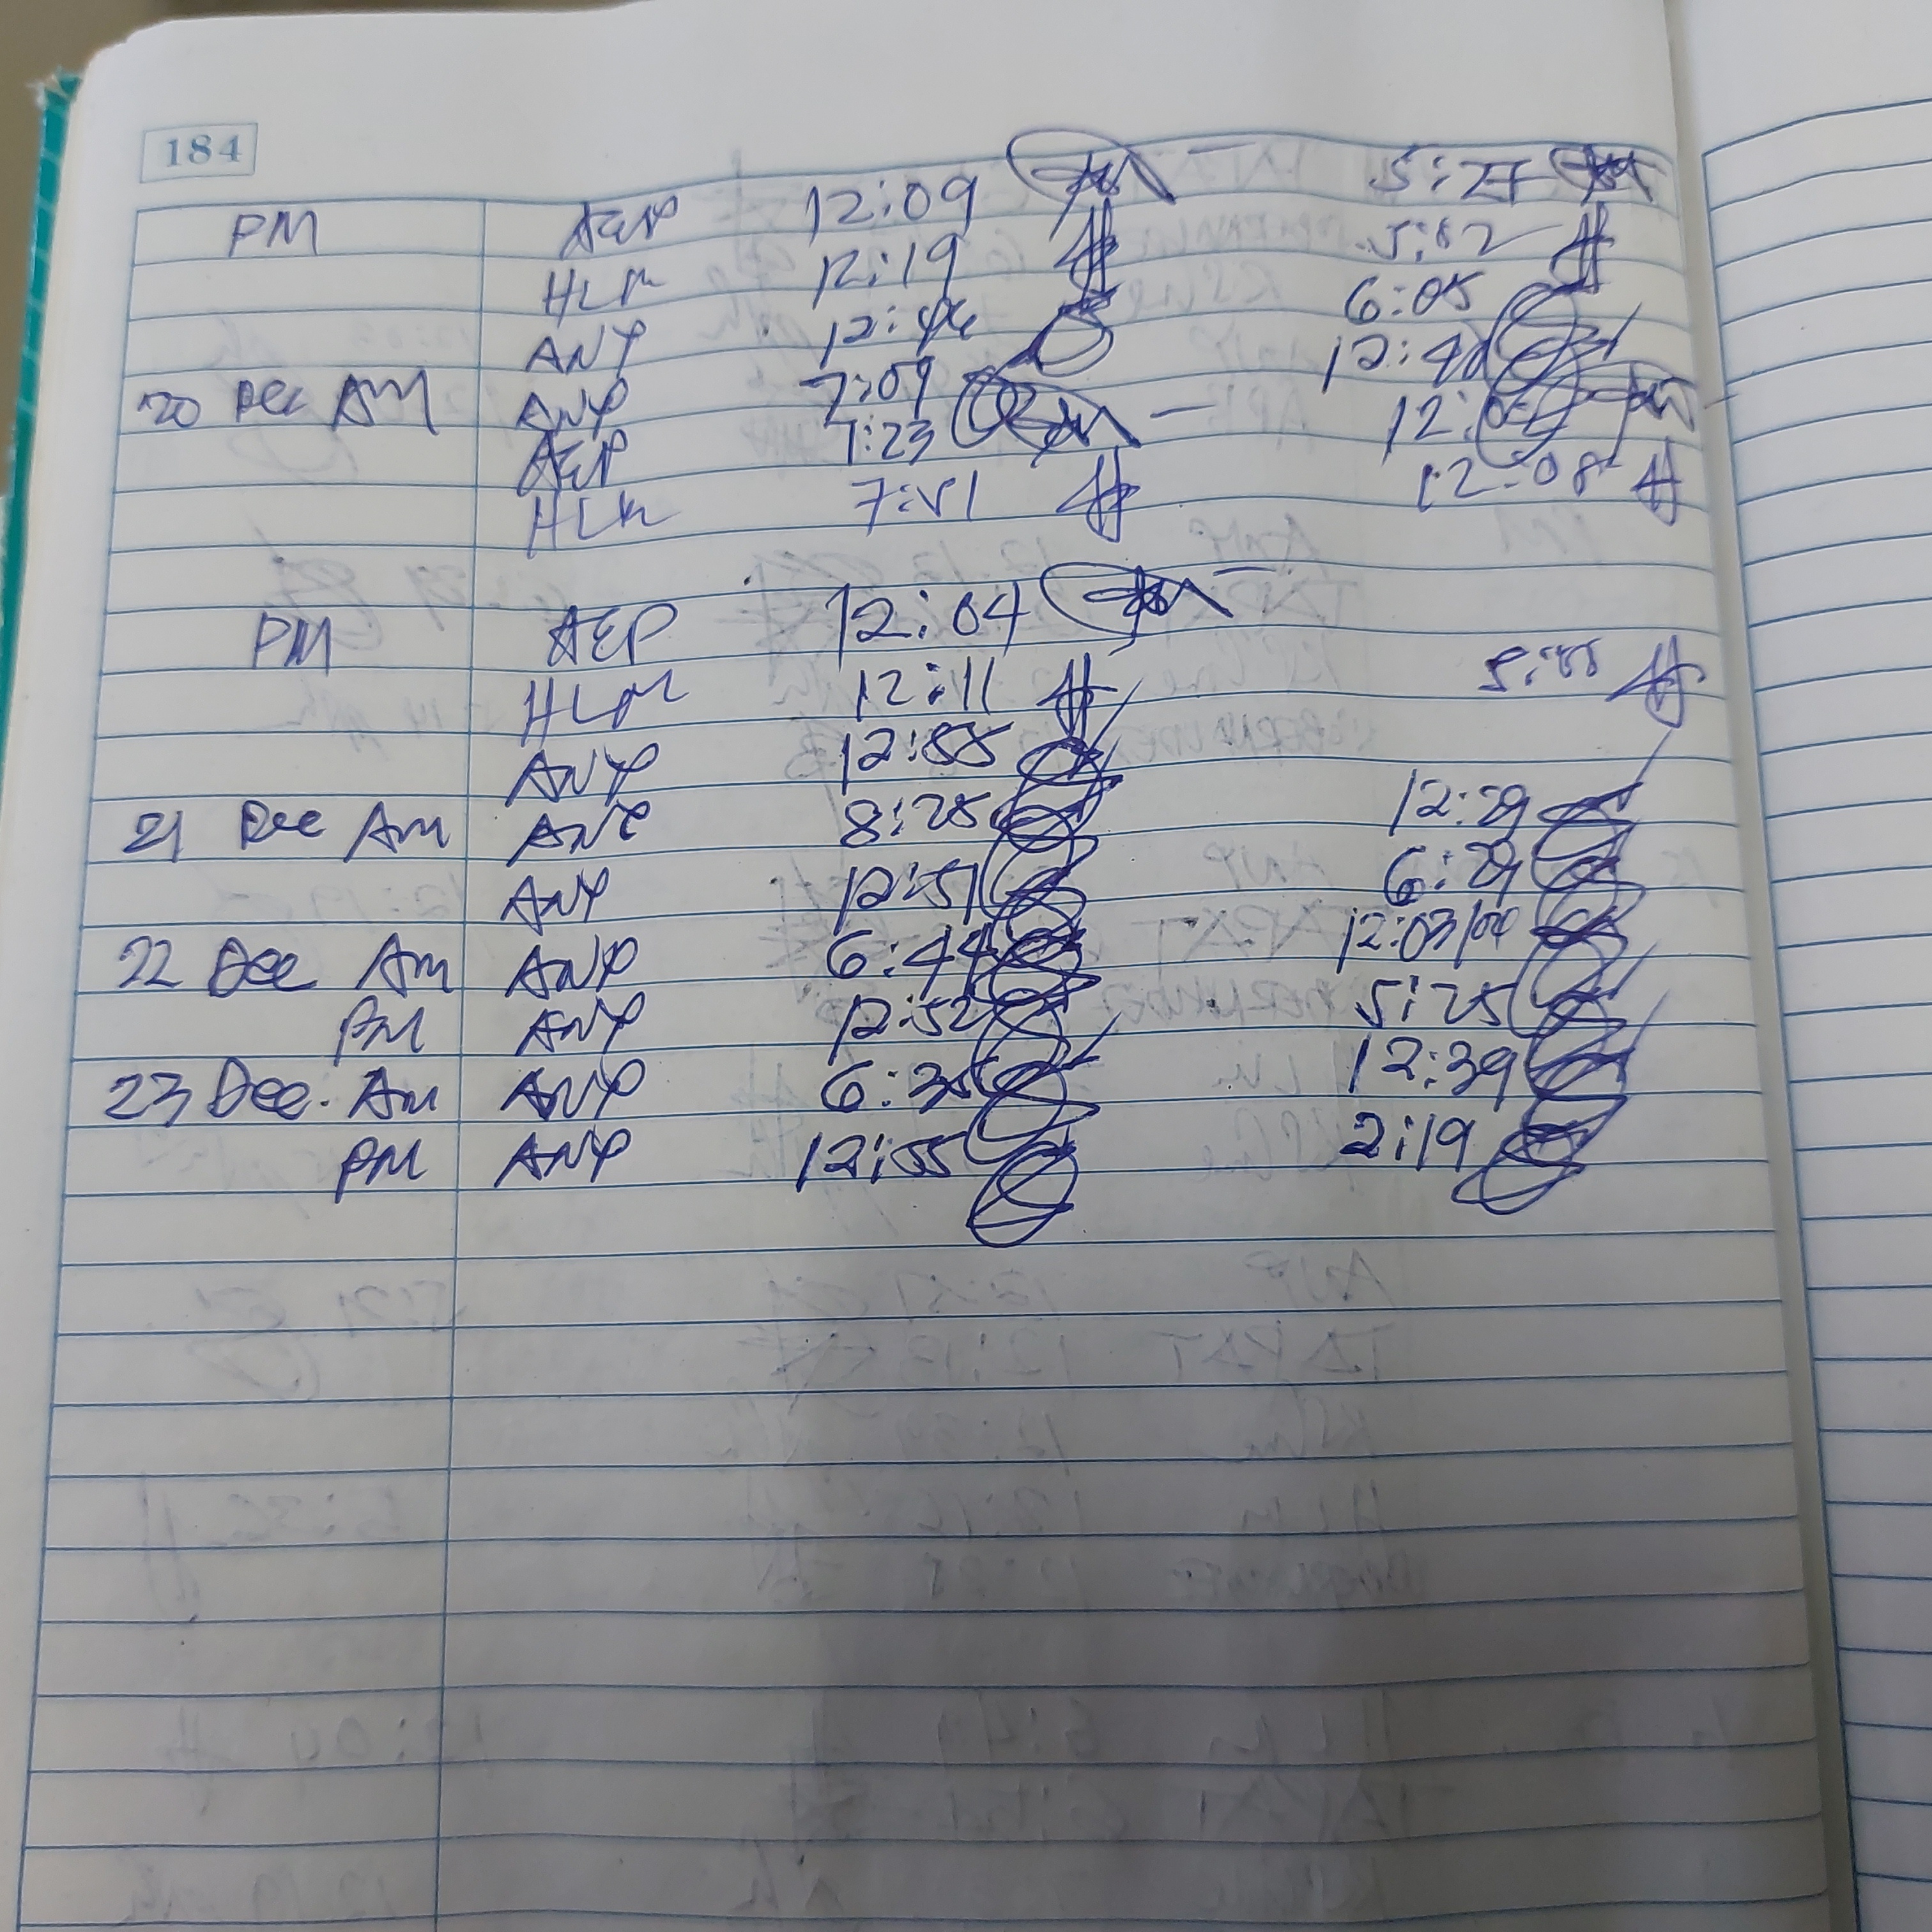 184
PM AEP 12:09 5:27
HLM 12:19 5:52
ANY 12:46 6:05
20 Dec AM ANY 7:09 12:40
AEP 7:23
HLM 7:51 12:08
PM AEP 12:04
HLM 12:11 5:55
ANY 12:55
21 Dec Am ANY 8:25 12:29
ANY 12:51 6:29
22 Dec Am ANY 6:44 12:03
PM ANY 12:52 5:25
23 Dec. Am ANY 6:35 12:39
PM ANY 12:55 2:19